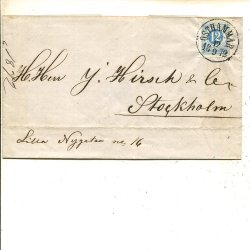 ÖSTHAMMAR
12
HHrrn J. Hirsch & Co
Stockholm
Lilla Nygatan no 16